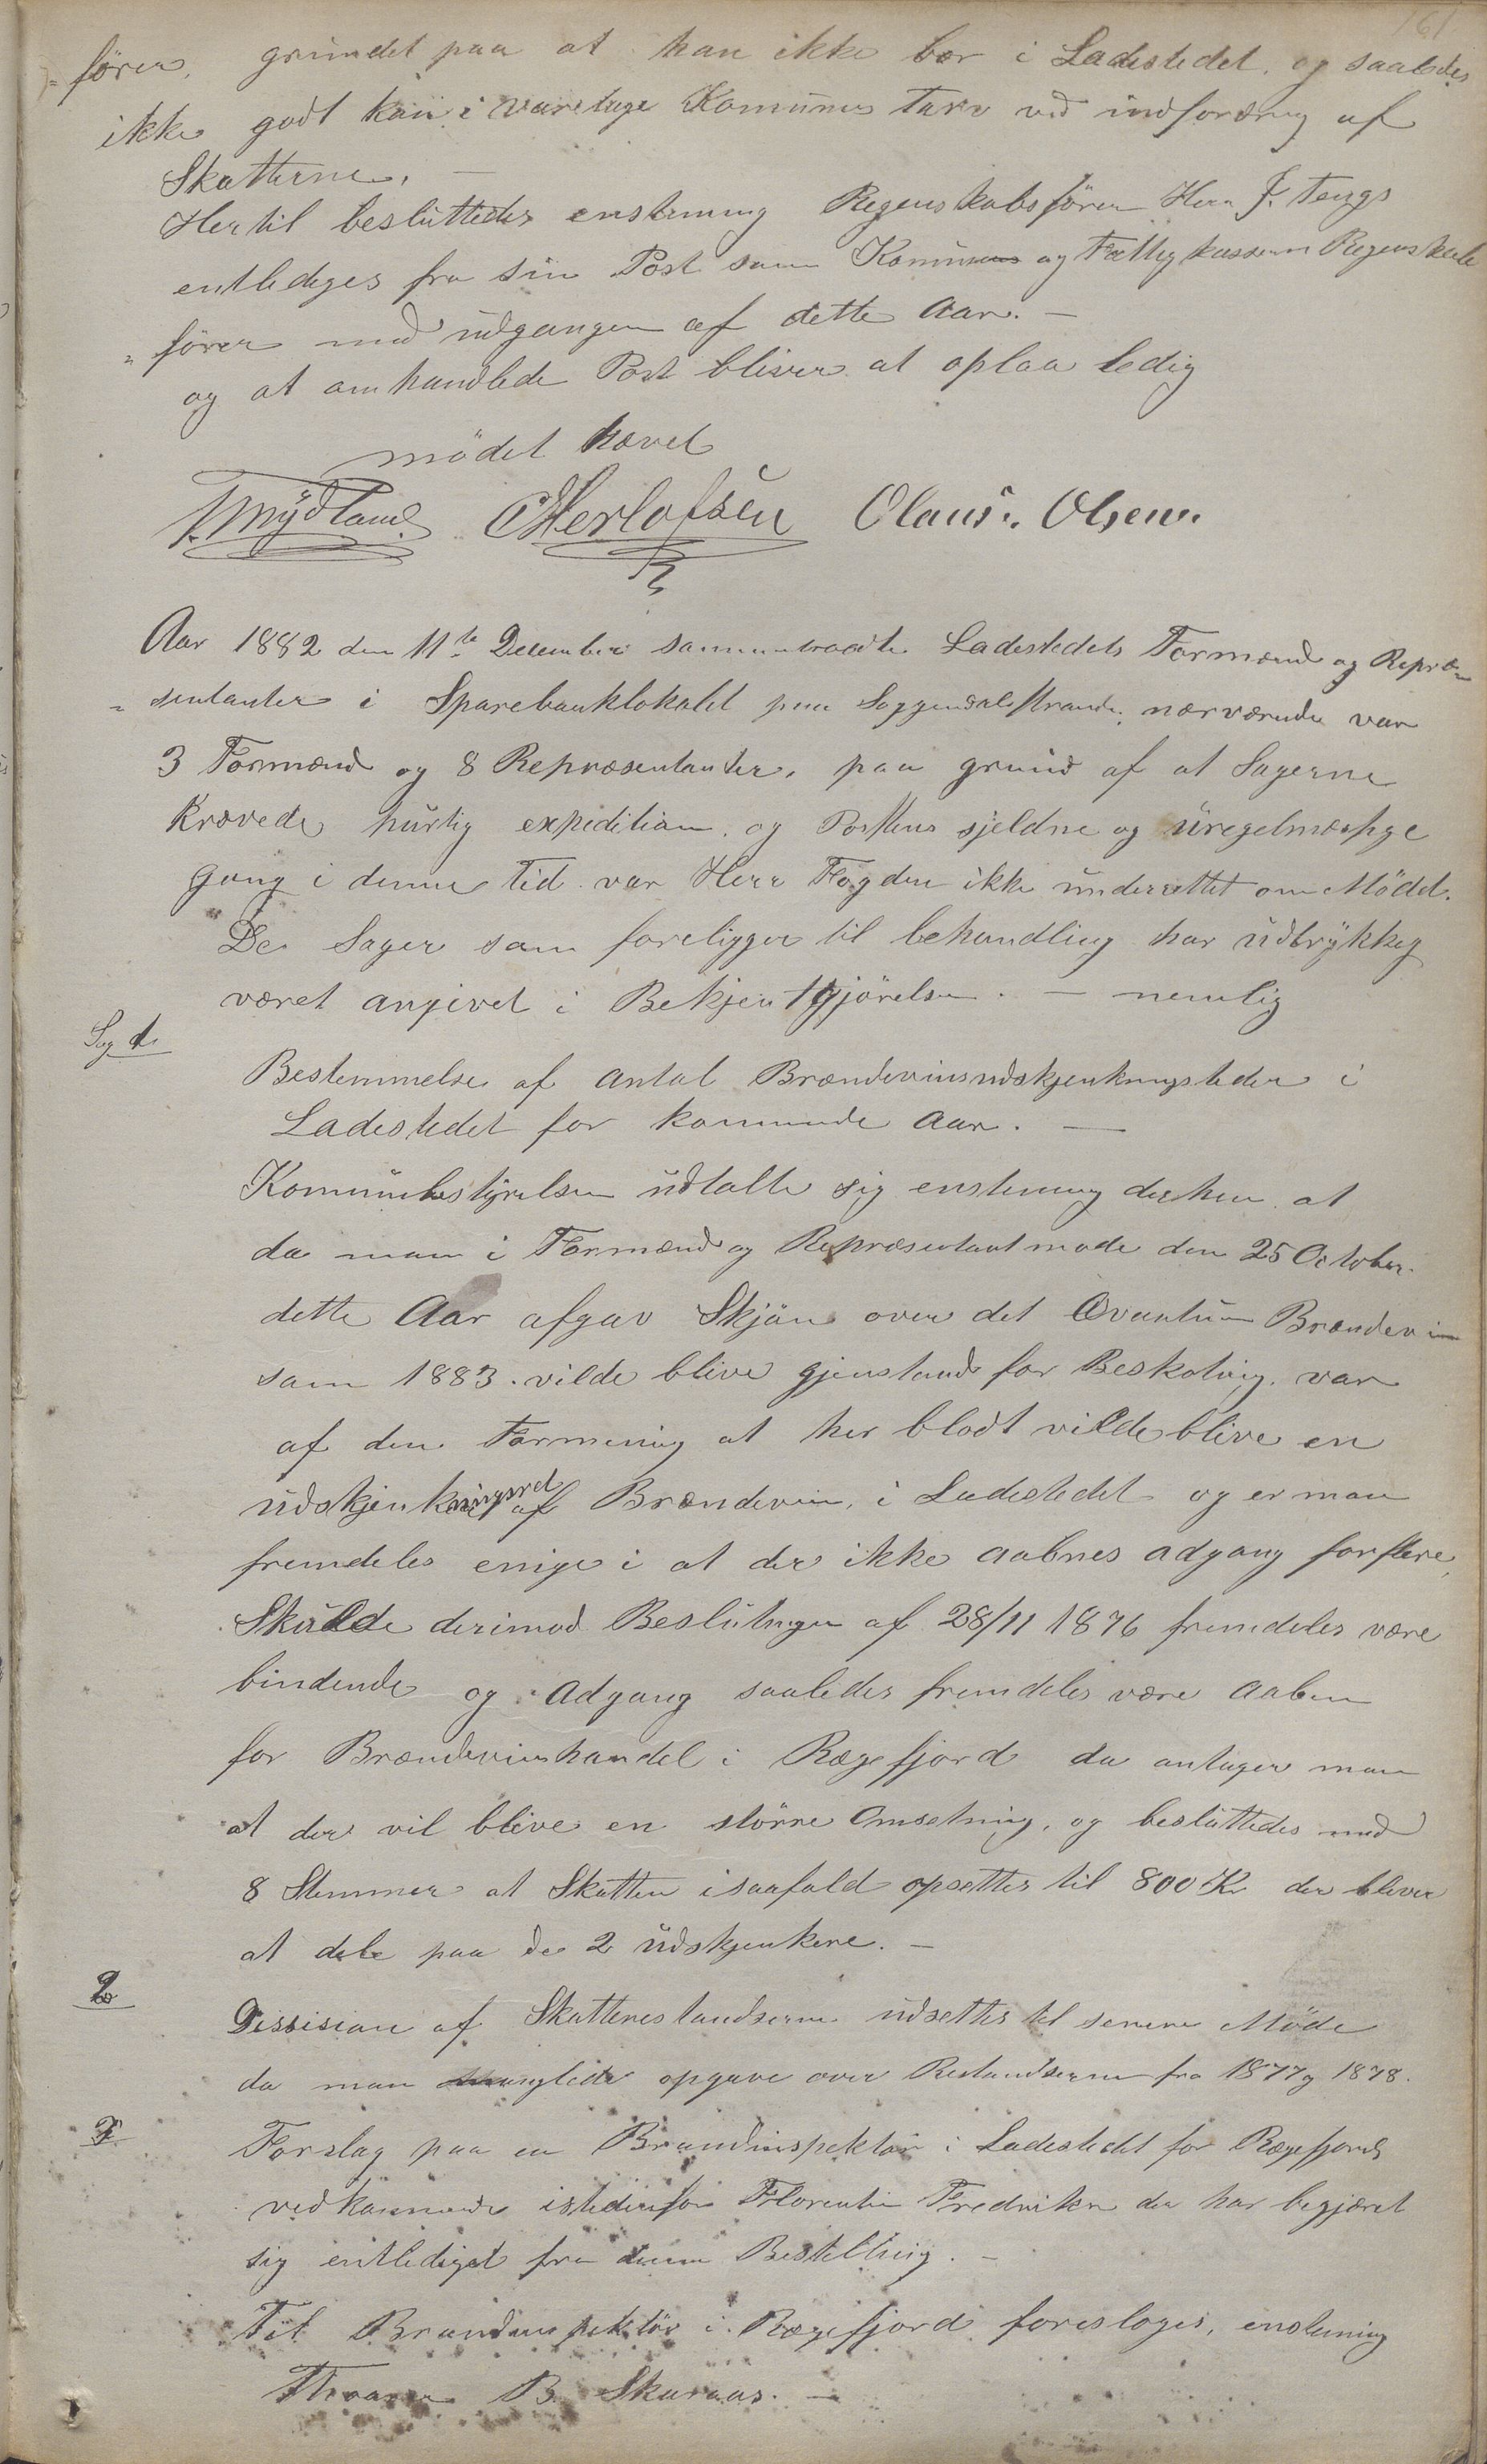 161
= fører, grundet paa at han ikke bor i Ladestedet, og saaledes
ikke godt kan i varetage Komunens tarv ved indfordring af
Skatterne. —
Hertil besluttedes enstemmig Regenskabsfører Herr J. Tengs
entlediges fra sin Post som Komunens og Fattigkassens Regenskabs
= fører med udgangen af dette Aar. —
og at omhandlede Post bliver at oplaa ledig
mødet hævet
T. Mydland. C Herlofsen Olaus. Olsen.
Aar 1882 den 11te December sammentraadte Ladestedets Formænd og Repræ=
= sentanter i Sparebanklokalet paa Soggendalstrand, nærværende var
3 Formænd og 8 Repræsentanter, paa grund af at Sagerne
krævede hurtig expedition, og Postens sjeldne og uregelmæssige
gang i denne tid var Herr Fogden ikke underrettet om Mødet.
De Sager som foreligger til behandling har udtrykkeg
været angivet i Bekjentgjørelsen. — nemlig
Sag 1
Bestemmelse af antal Brændevinsudskjenkningsteder i
Ladestedet for kommende Aar. —
Komunebestyrelsen udtalte sig enstemmig derhen at
da man i Formænd og Repræsentantmøde den 25 October
dette Aar afgav Skjøn over det Qvantum Brændevin
som 1883. vilde blive gjenstand for Beskatnig. var
af den Formening at her blodt vilde blive en
udskjenkningsret af Brændevin, i Ladestedet og er man
fremdeles enige i at der ikke aabnes adgang for flere,
Skulde derimod Beslutngen af 28/11 1876 fremdeles være
bindende og Adgang saaledes fremdeles være aaben
for Brændevinshandel i Rægefjord da antager man
at der vil blive en større Omsetning, og besluttedes med
8 Stemmer at Skatten isaafald opsettes til 800 Kr der bliver
at dele paa de 2 udskjenkere. —
2
Dissision af Skatterestandserne udsettes til senere Møde
da man manglede opgave over Restandserne fra 1877 og 1878.
3
Forslag paa en Brandinspektør i Ladestedet for Rægefjords
vedkommende istedenfor Florentin Fredriksen der har begjæret
sig entlediget fra denne Bestelling. —
Til Brandinspektør i Rægefjord foresloges, enstemmig
B. Skaraas. —